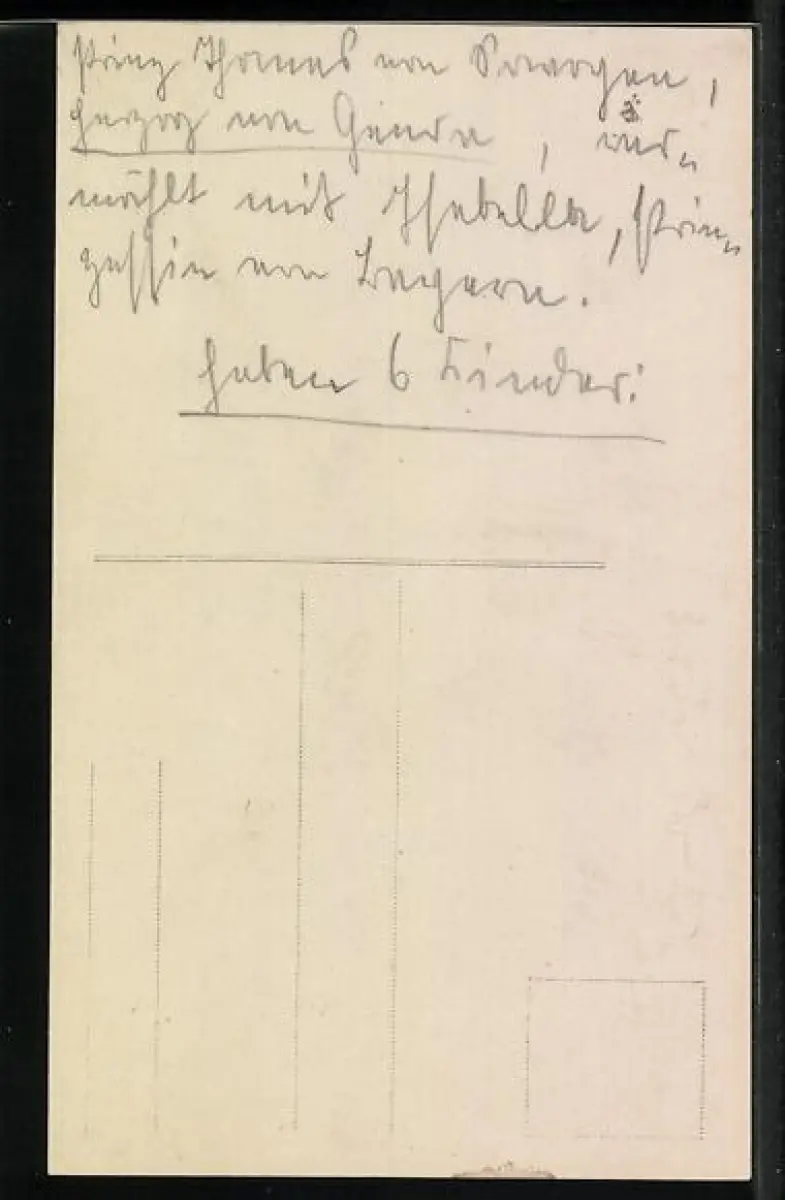 Prinz Thomas von Savoyen,
Herzog von Genua, ver„
mählt mit Isabella, Prin„
zessin von Bayern.
haben 6 Kinder!